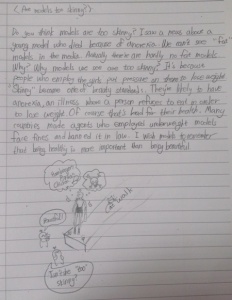 < Are models too skinny? >
Do you think models are too skinny? I saw a news about a
young model who died because of anorexia. We can't see "fat"
models in the media. Actually there are hardly no fat models.
Why? Why models we see are too skinny? It's because
people who employ the girls put pressure on them to lose weight
"Skinny" became one of beauty standards. They're likely to have
Anorexia, an illness where a person refuses to eat in order
to lose weight. Of course that's bad for their health. Many
countries made agents who employed underweight models
face fines and banned it in law. I wish models to remember
that being healthy is more important than being beautiful
beautiful!
cat walk
I wanna be "too
skinny"